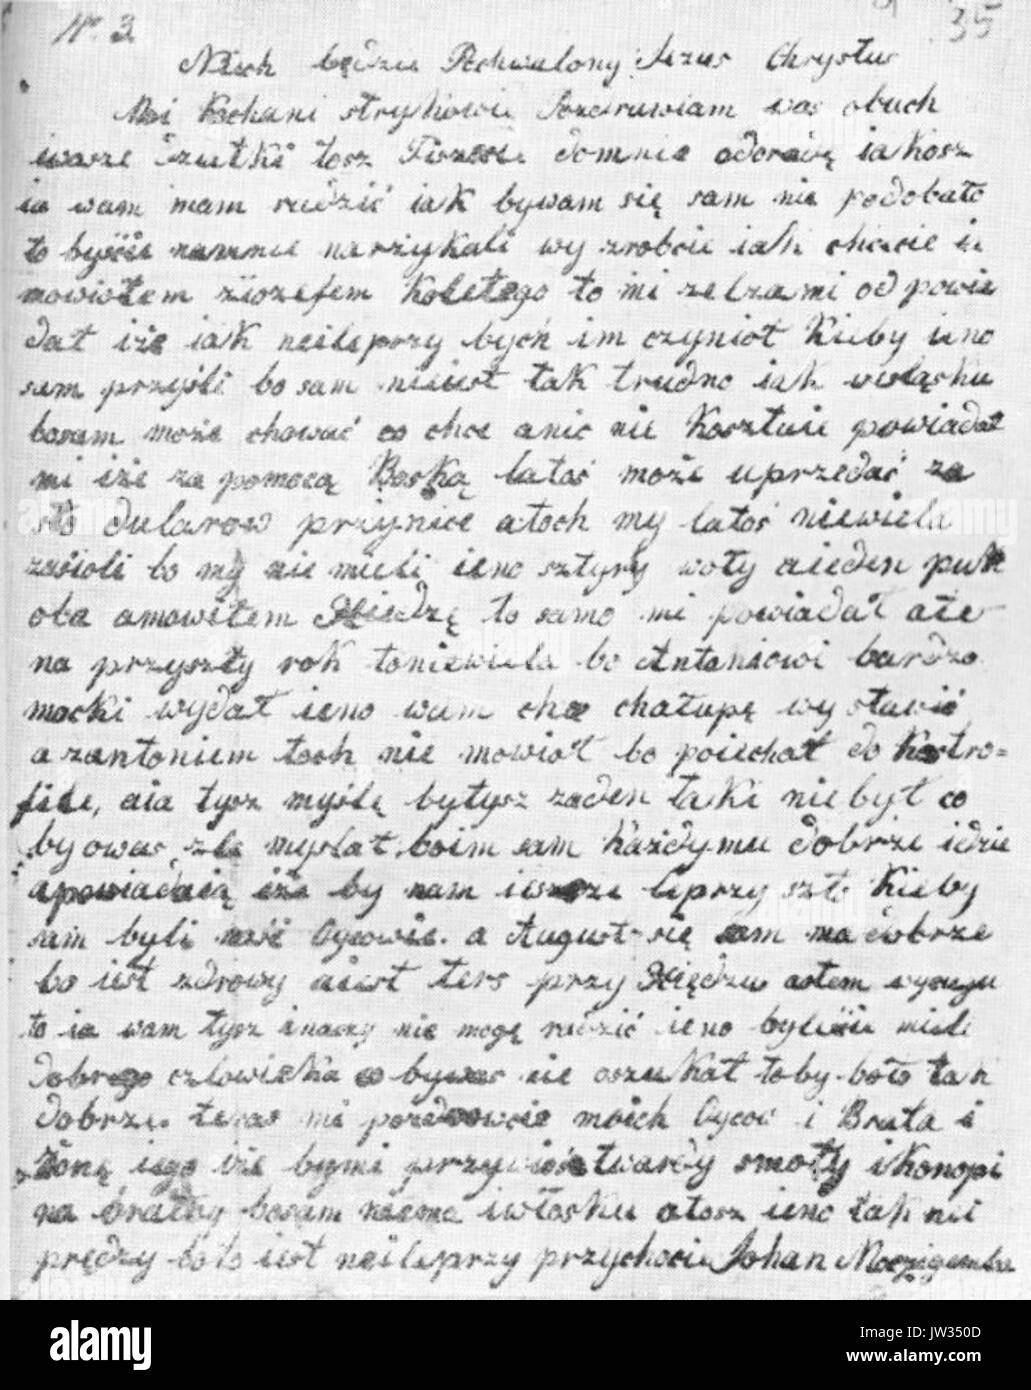 No. 3 35
Niech będzie Pochwalony Jezus Chrystus
Moi Kochani strykowie Pozdrawiam was obuch
iwasze tosz domnie iakosz
ia wam mam radzić iak bywam się sam nie podobało
to byście nanmie narzykali wy zrobcie iak chcecie ia
mowiołem ziozefem to mi zelzami odpowie
dał iże iak neileprzy bych im czynioł Kieby ieno
sam przyśli bo sam nieiest tak trudno iak wesląsku
bosam może chować co chce anic nie Kosztuie powiadał
mi iże za pomocą Boską latoś może uprzedać za
sto dularow przynice atoch my latoś niewiela
zasioli bo my nie mieli ieno sztyry woły aieden puk
oba amowiłem Xiedzę to samo mi powiadał ale
na przyszły rok toniewiela bo Antoniowi bardzo
mocki wydał ieno wam chce chałupę wystawić
a zantoniem toch nie mowioł bo poiechał do Kastro=
file, aia tysz myślę byłysz zaden taki niebył co
byowas zle mysłał boim sam Każdymu dobrze idzie
apowiadaią iże by nam ieszcze leprzy szło Kieby
sam byli naśi Oycowie. a August się sam ma dobrze
bo iest zdrowy aiest ters przy Xiędzu aotem
to ia wam tysz inaczy nie mogę radzić ieno byliście mieli
dobrego człowieka co bywas nie oszukał toby beło tak
dobrze. teras mi pozdrowcie moich Oycow i Brata i
żonę iego iże bymi przywiośe twardy smoły ikonopi
na bosam niema iwłosku atosz ieno tak nei
prędzy boto iest neileprzy przychocie Johan Moczigemba
alamy
Image ID: JW350D
www.alamy.com